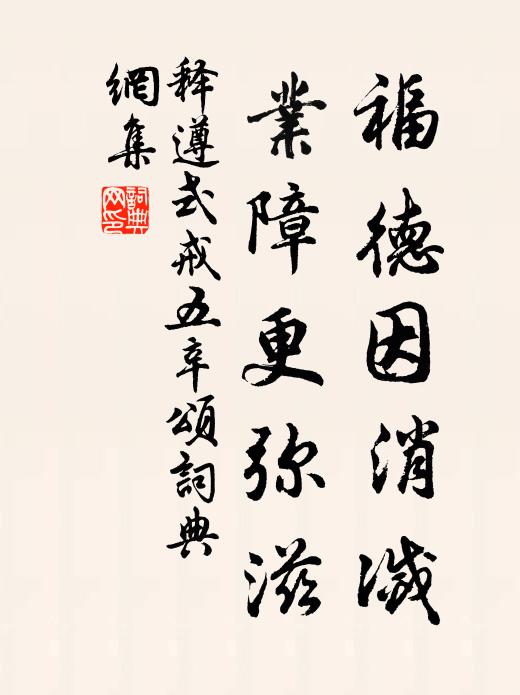 福德因消滅
業障更弥滋
释遵式戒五辛頌詞典
網集
詞典網印